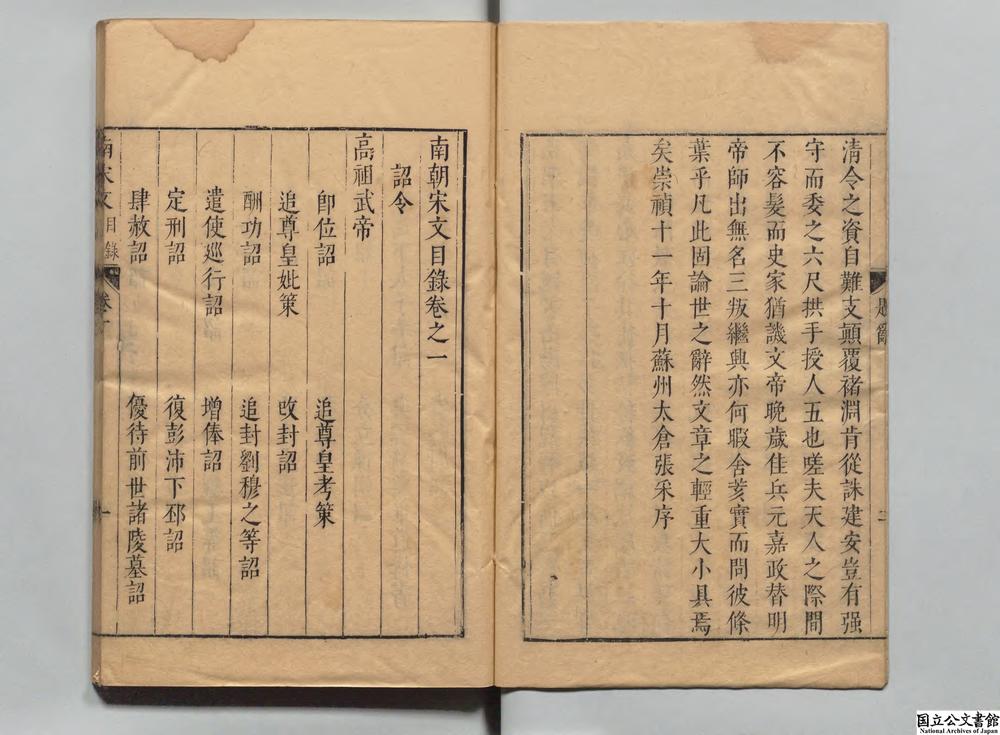 清令之資自難支顛覆褚淵肯從誅建安豈有强
守而委之六尺拱手授人五也嗟夫天人之際間
不容髮而史家猶譏文帝晚歲佳兵元嘉政替明
帝師出無名三叛繼興亦何暇舍芟實而問彼條
葉乎凡此固論世之辭然文章之輕重大小具焉
矣崇禎十一年十月蘇州太倉張采序
題辭
二
南朝宋文目錄卷之一
詔令
高祖武帝
卽位詔 追尊皇考策
追尊皇妣策 改封詔
酬功詔 追封劉穆之等詔
遣使巡行詔 增俸詔
定刑詔 復彭沛下邳詔
肆赦詔 優待前世諸陵墓詔
南宋文 目錄 卷一
一
国立公文書館
National Archives of Japan